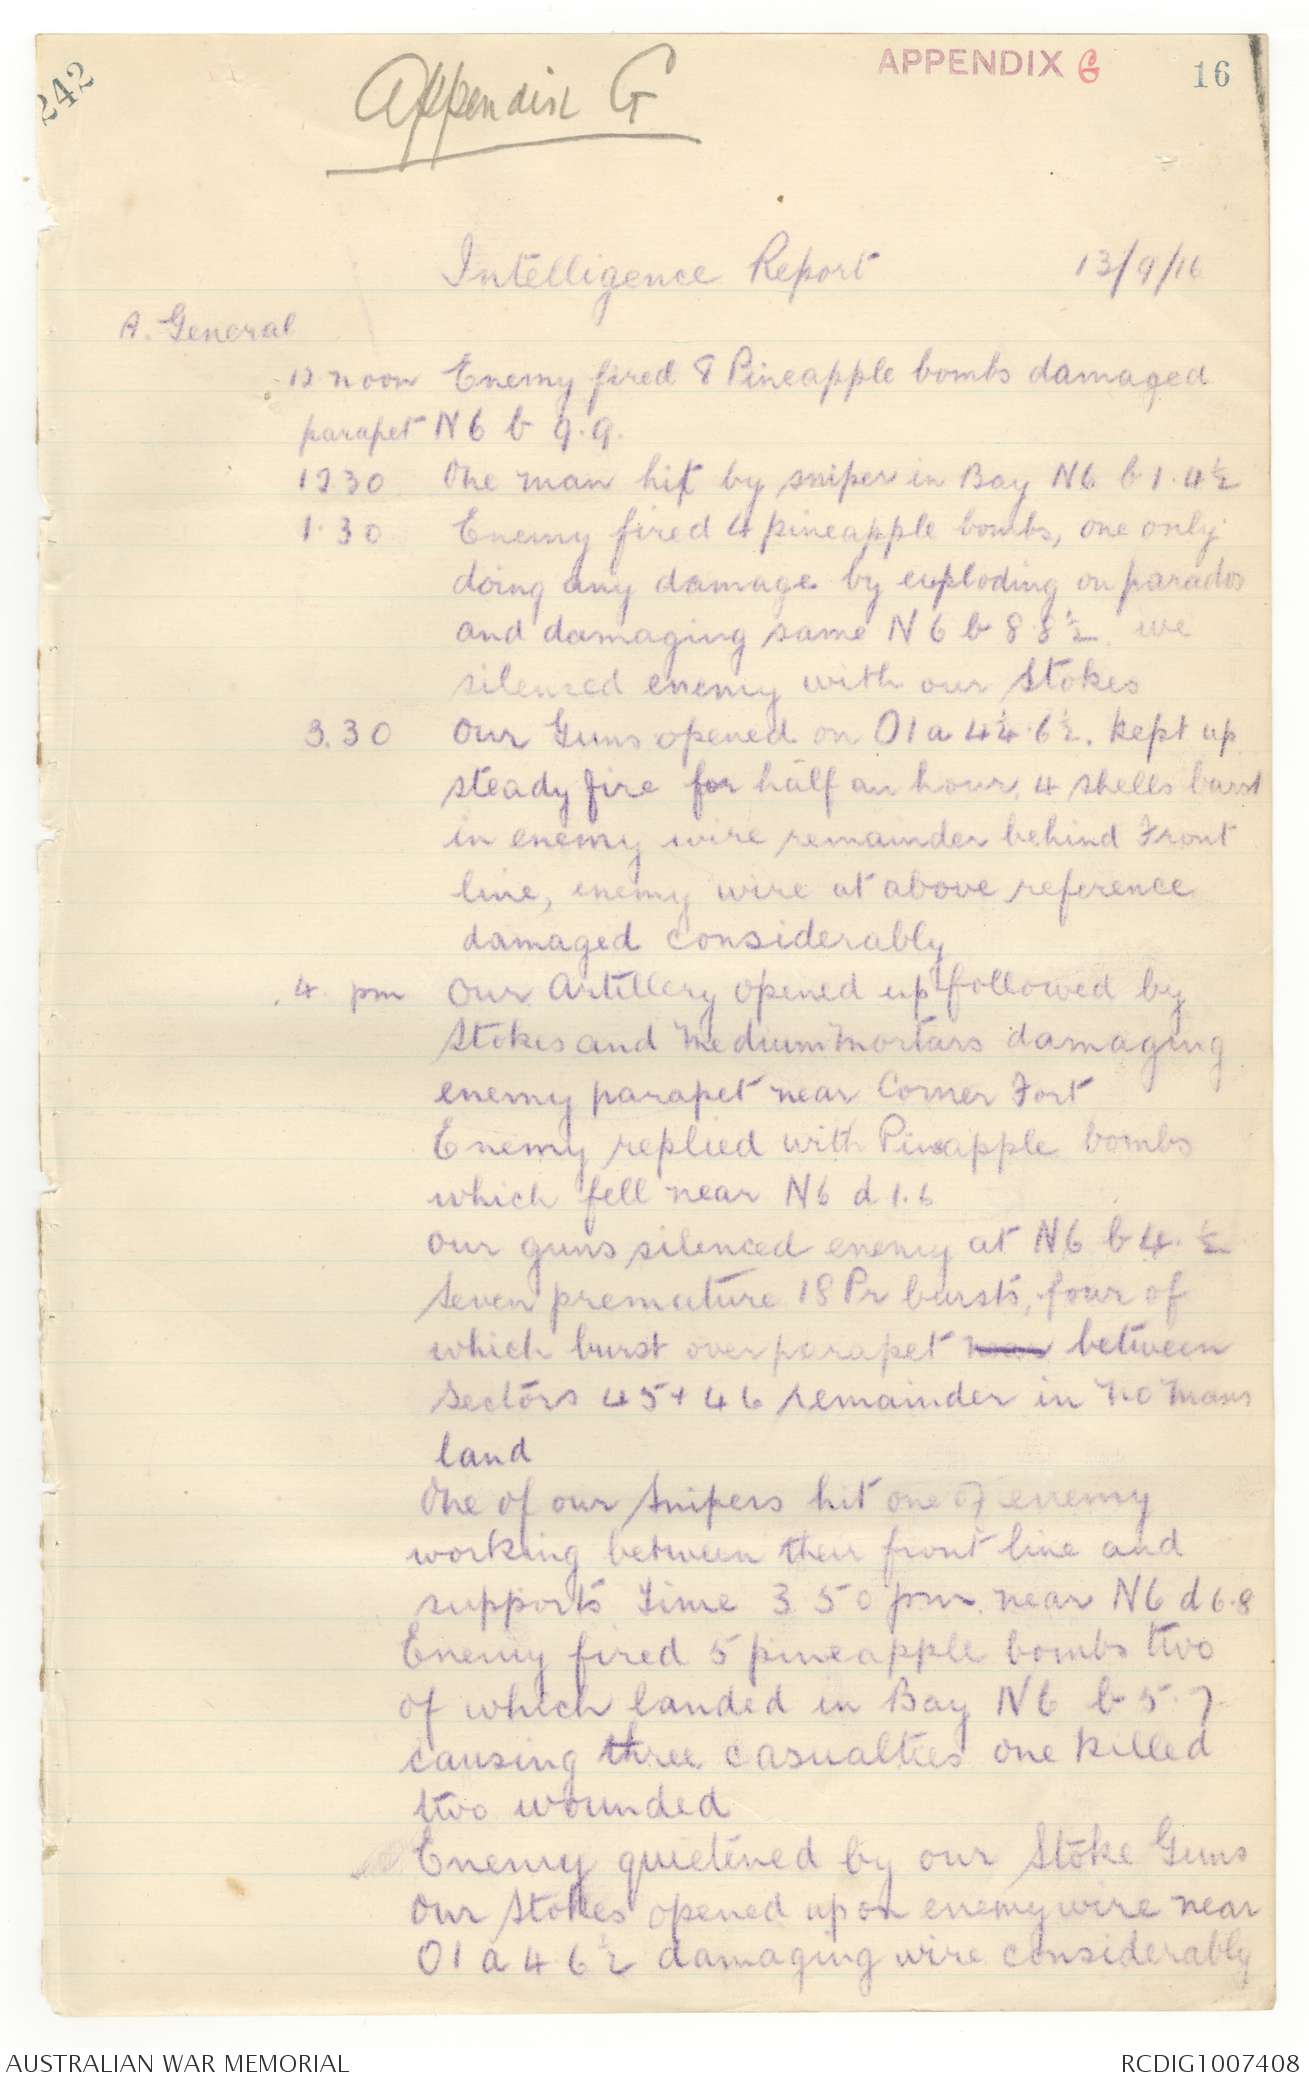 242
Appendix G
APPENDIX G
16
Intelligence Report 13/9/16
A. General
12 noon Enemy fired 8 Pineapple bombs damaged
parapet N6 b 9.9.
1230 One man hit by sniper in Bay N6 b 1.4½
1.30 Enemy fired 4 pineapple bombs, one only
doing any damage by exploding on parados
and damaging same N6 b 8.8½. we
silenced enemy with our Stokes
3.30 Our Guns opened on O1a 4¼.6½. kept up
steady fire for half an hour, 4 shells burst
in enemy wire remainder behind Front
line, enemy wire at above reference
damaged considerably
4 pm Our Artillery opened up followed by
Stokes and Medium Mortars damaging
enemy parapet near Corner Fort
Enemy replied with Pineapple bombs
which fell near N6 d 1.6
Our guns silenced enemy at N6 b 4.½
Seven premature 18 Pr bursts, four of
which burst over parapet near between
sectors 45 + 46 remainder in No Mans
land
One of our Snipers hit one of enemy
working between their front line and
supports Time 3 50 pm. near N6 d 6.8
Enemy fired 5 pineapple bombs two
of which landed in Bay N6 b 5.7
causing three casualties one killed
two wounded
Enemy quietened by our Stoke Guns
Our Stokes opened up on enemy wire near
O1 a 4 6½ damaging wire considerably
AUSTRALIAN WAR MEMORIAL
RCDIG1007408